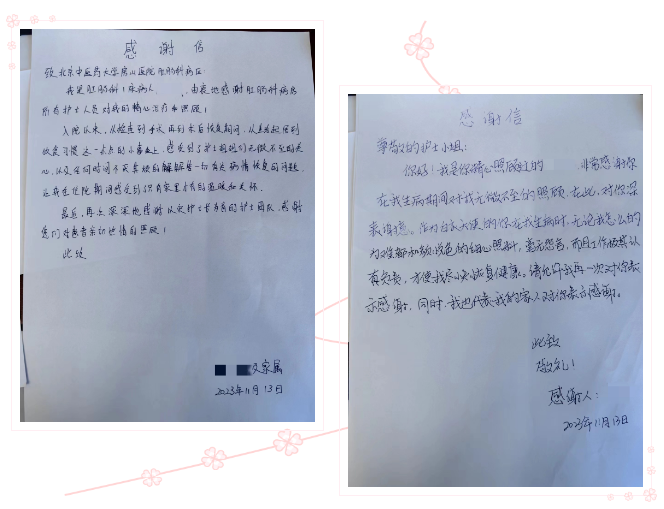 感谢信
致北京中医药大学房山医院肛肠科病区
我是肛肠科1床病人 ,由衷地感谢肛肠科病房
所有护士人员对我的精心治疗和照顾!
入院以来,从检查到手术再到术后恢复期间,从
这一点点的小事上,感受到了护士姐姐们无微不至的关
心,以及任何时间不厌其烦的解答一切有关病情恢复的问题,
让我在住院期间感受到只有家里才有的温暖和关怀。
最后,再次深深地感谢以 护士长为首的护士团队,感谢
您们对患者亲切热情的照顾!
此致
及家属
2023年11月13日
感谢信
尊敬的护士小姐:
你好!我是你精心照顾过的 ,非常感谢你
在我生病期间对我无微不至的照顾,在此,对你深
表谢意。作为白衣天使的你在我生病时,无论我怎么的
为难你都和颜悦色的细心照料,毫无怨言,而且工作踏实认
真负责,方便我尽快恢复健康。请允许我再一次对你表
示感谢,同时,我也代表我的家人对你表示感谢。
此致
敬礼!
感谢人:
2023年11月13日